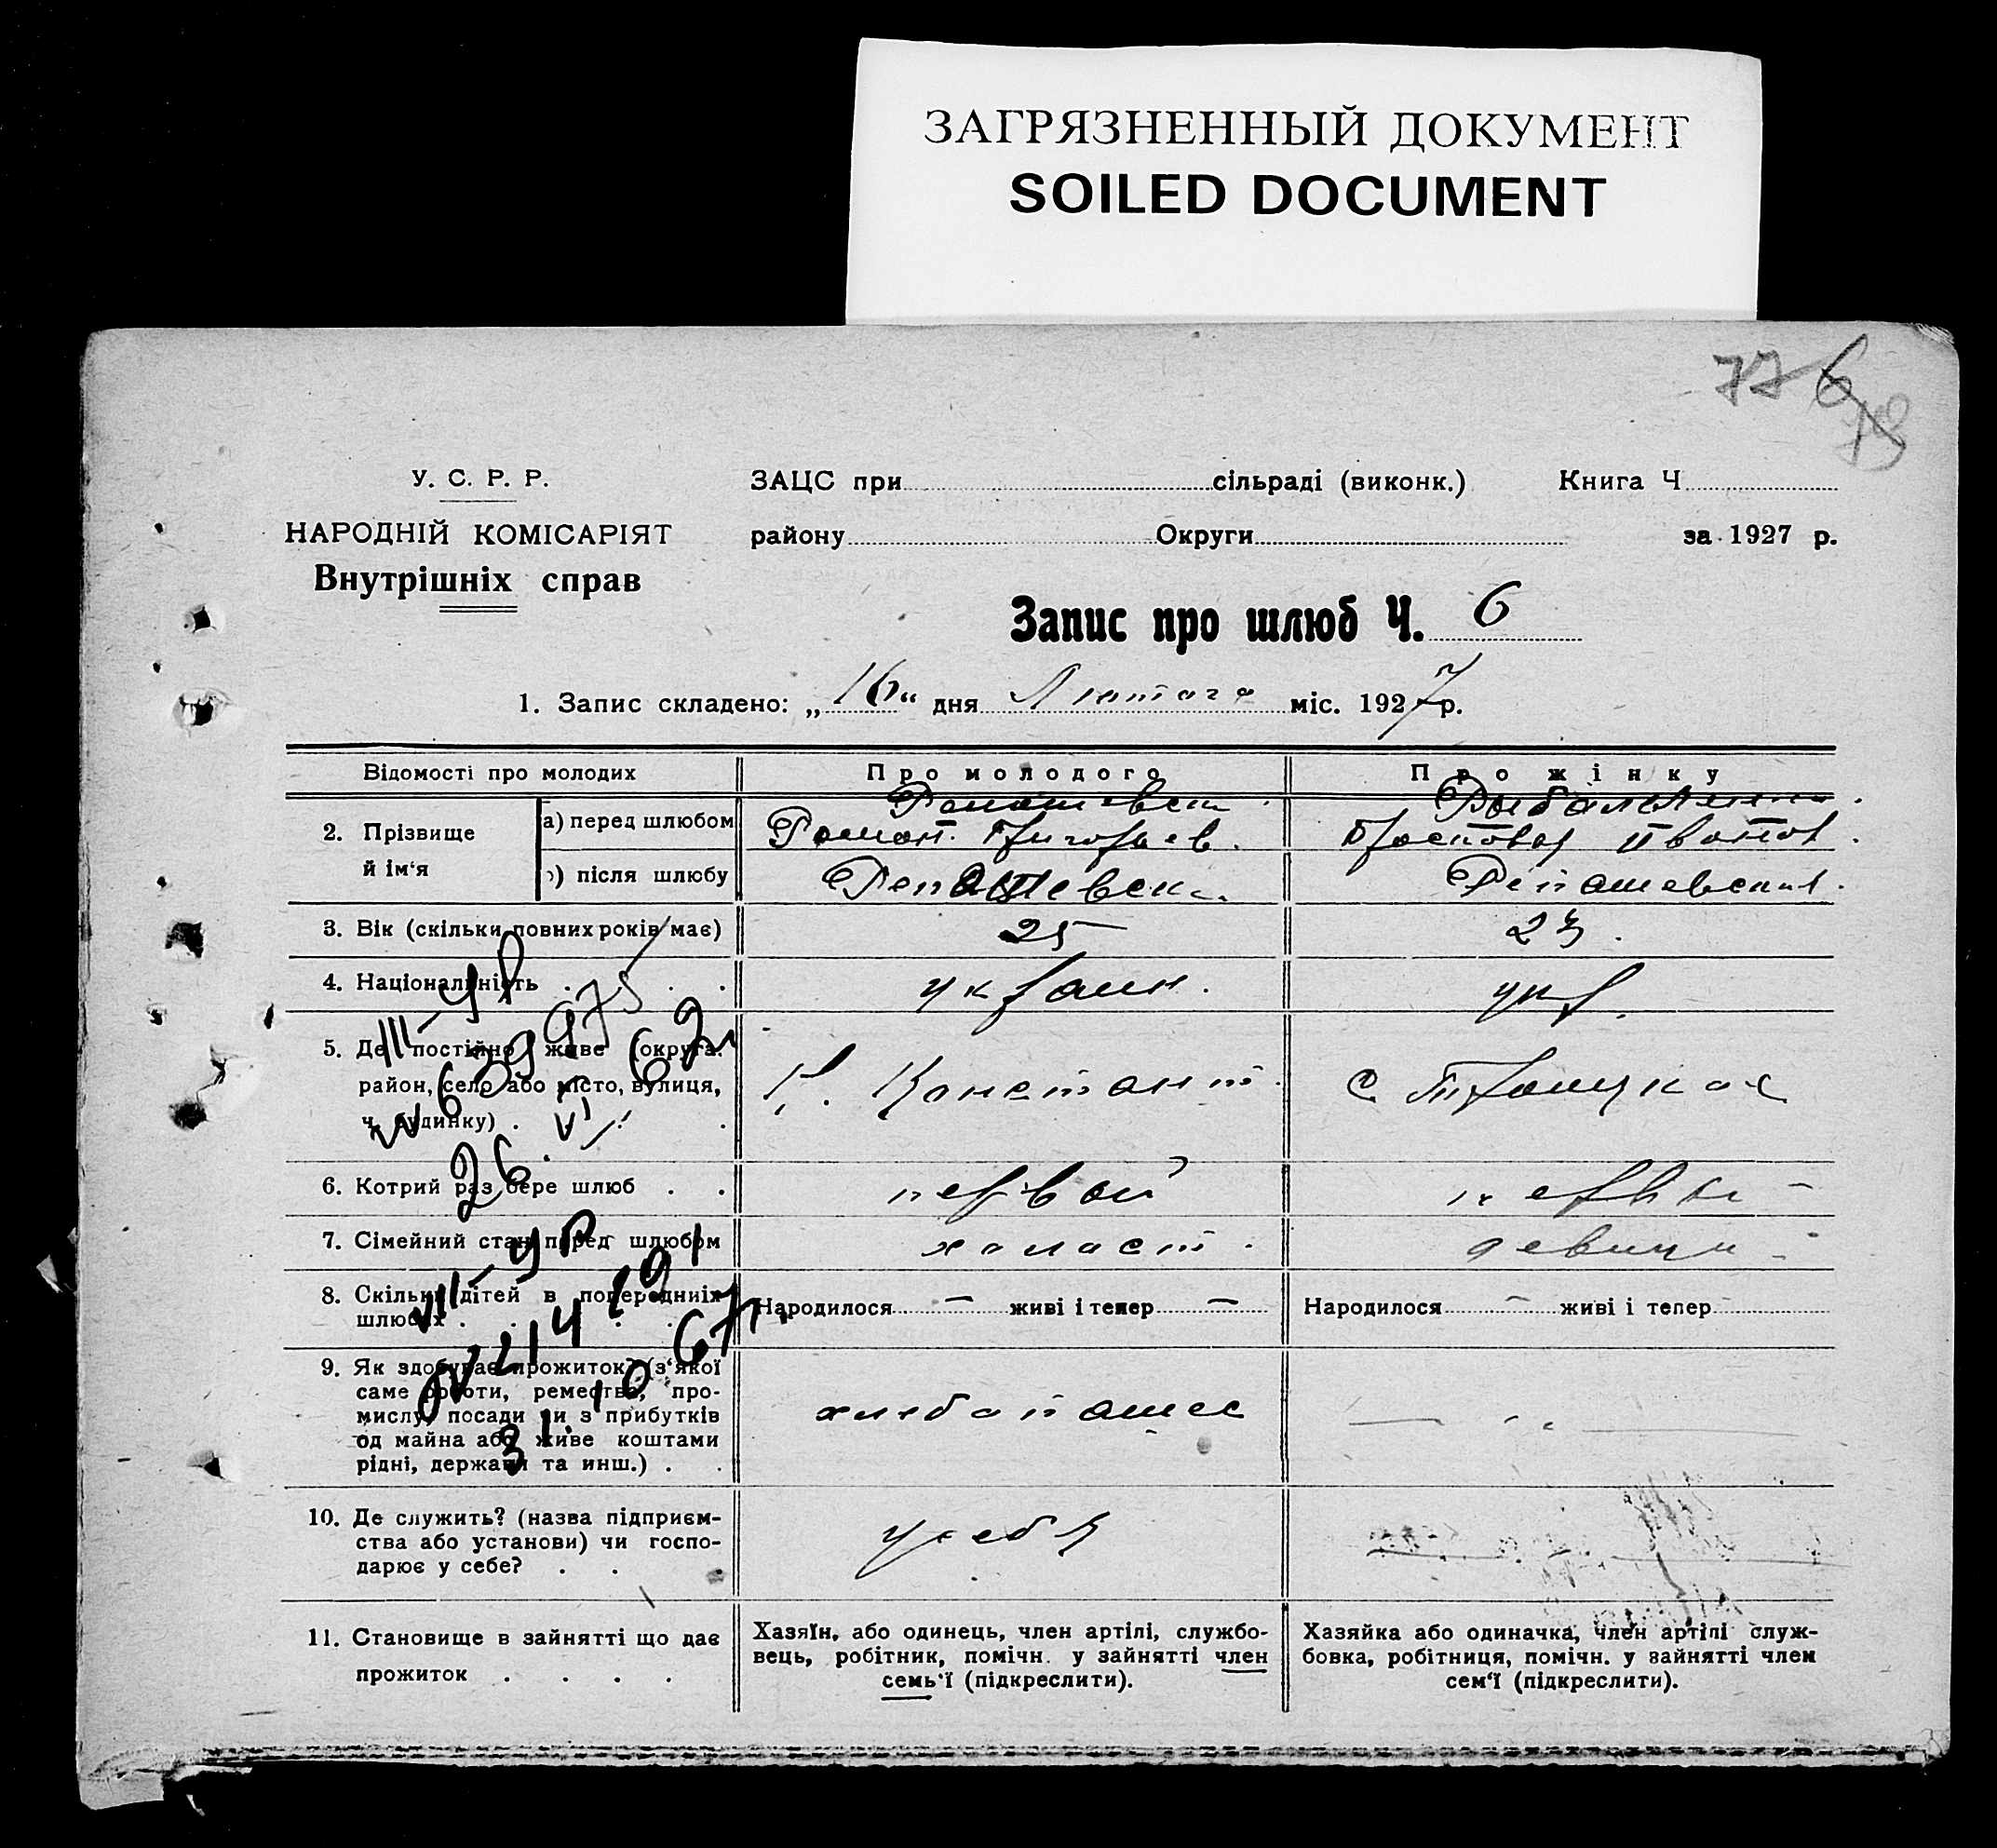 ЗАГРЯЗНЕННЫЙ ДОКУМЕНТ
SOILED DOCUMENT
77 6
У. С. Р. Р.
НАРОДНІЙ КОМІСАРІЯТ
Внутрішніх справ
ЗАЦС при сільраді (виконк.) Книга Ч
району Округи за 1927 р.
Запис про шлюб Ч. 6
1. Запис складено: „16“ дня Лютого міс. 1927 р.
Відомості про молодих
Про молодого
Про жінку
2. Прізвище й ім‘я
а) перед шлюбом
Роман Григорьев.
Ивонов
) після шлюбу
Репашевск.
Репашевская.
3. Вік (скільки повних років має)
25
23.
4. Національність . . . .
украин.
укр.
5. Де постійно живе (округа.
район, село або місто, вулиця,
ч. будинку) . . . .
Констант.
с
6. Котрий раз бере шлюб . .
первой
первы
7. Сімейний стан перед шлюбом
холост.
девица
8. Скільки дітей в попередніх
шлюбах . . . .
Народилося — живі і тепер —
Народилося — живі і тепер
9. Як здобуває прожиток? (з‘якої
саме роботи, ремества, про-
мислу, посади чи з прибутків
од майна або живе коштами
рідні, держави та инш.) . .
хлебопашес
10. Де служить? (назва підприєм-
ства або установи) чи госпо-
дарює у себе? . . .
усебя
11. Становище в зайнятті що дає
прожиток . . . .
Хазяїн, або одинець, член артілі, службо-
вець, робітник, помічн. у зайнятті член
семь‘ї (підкреслити).
Хазяйка або одиначка, член артілі служ-
бовка, робітниця, помічн. у зайнятті член
сем‘ї (підкреслити).
III-УР
639975
26. VI. 62
VII-УР
31. 10 67